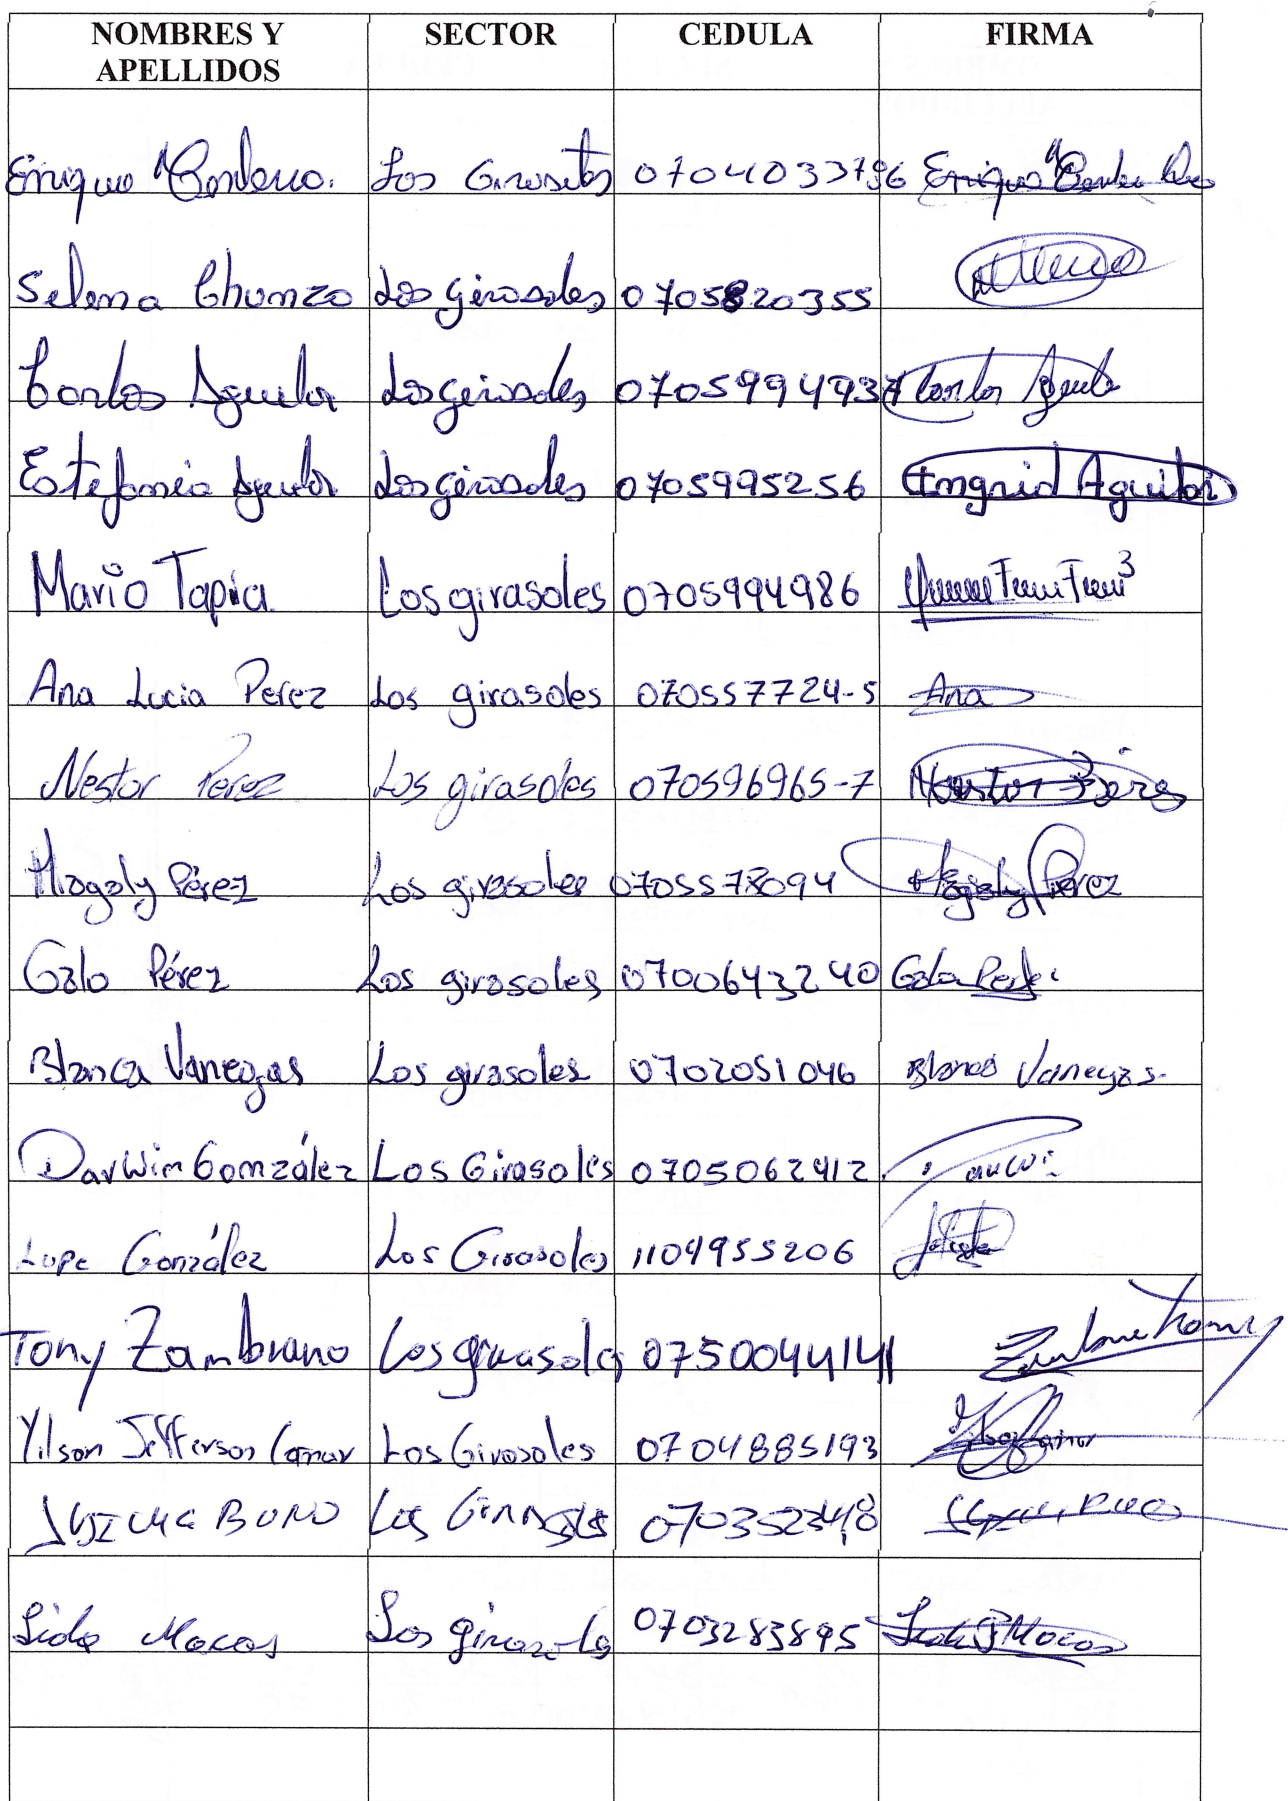 NOMBRES Y APELLIDOS SECTOR CEDULA FIRMA
Enrique Cordero. Los Girasoles 0704033796 Enrique
Selena Chunzo Los girasoles 0705820355
Carlos Aguilar Los girasoles 0705994937 Carlos Aguila
Estefania Aguilar Los girasoles 0705995256 Ingrid Aguilar
Mario Tapia Los girasoles 0705994986
Ana Lucia Perez Los girasoles 070557724-5 Ana
Nestor Perez Los girasoles 070596965-7 Nestor Pérez
Magaly Pérez Los girasoles 0705578094 Magaly Pérez
Galo Pérez Los girasoles 0700643240 Galo Perez
Blanca Vanegas Los girasoles 0702051046 Blanca Vanegas
Darwin González Los Girasoles 0705062412
Lupe González Los Girasoles 1104955206
Tony Zambrano Los girasoles 0750044141 Zambrano Tony
Yilson Jefferson Los Girasoles 0704885193
Los Girasoles
Lida Macas Los girasoles 0703283895 Lida Macas